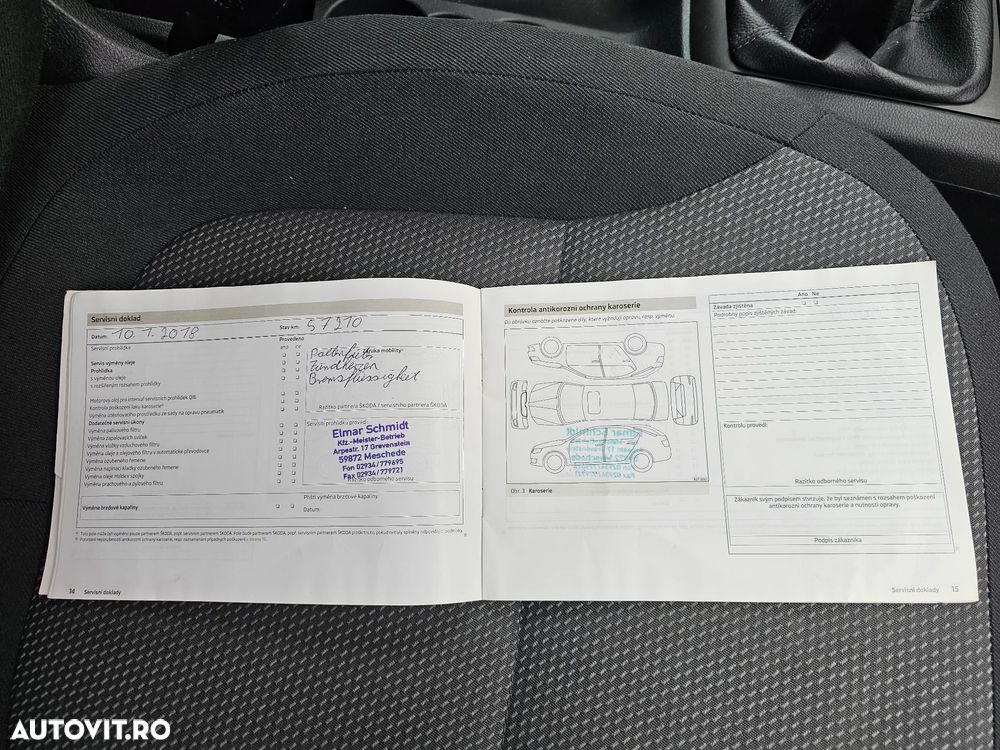 Servisní doklad
Datum: 10. 1. 2018
Stav km: 57210
Provedeno
ano ne
Servisní prohlídka
Servis výměny oleje
Prohlídka
s výměnou oleje
s rozšířeným rozsahem prohlídky
Zündkerzen
Bremsflüssigkeit
Razítko partnera ŠKODA / servisního partnera ŠKODA
Motorový olej pro interval servisních prohlídek QI6
Kontrola poškození laku karoserie
Výměna utěsňovacího prostředku ze sady na opravu pneumatik
Dodatečné servisní úkony
Výměna palivového filtru
Výměna zapalovacích svíček
Výměna vložky vzduchového filtru
Výměna oleje a olejového filtru v automatické převodovce
Výměna ozubeného řemene
Výměna napínací kladky ozubeného řemene
Výměna oleje Haldex spojky
Výměna prachového a pylového filtru
Servisní prohlídku provedl:
Elmar Schmidt
Kfz.-Meister-Betrieb
Arpestr. 17 Grevenstein
59872 Meschede
Fon 02934/779695
Fax 02934/779721
Razítko odborného servisu
Výměna brzdové kapaliny
Příští výměna brzdové kapaliny
Datum:
14 Servisní doklady
Kontrola antikorozní ochrany karoserie
Do obrázku označte poškozené díly, které vyžadují opravu, resp. výměnu.
Elmar Schmidt
Obr. 3 Karoserie
Ano Ne
Závada zjištěna
Podrobný popis zjištěných závad:
Kontrolu provedl:
Razítko odborného servisu
Zákazník svým podpisem stvrzuje, že byl seznámen s rozsahem poškození
antikorozní ochrany karoserie a nutností opravy.
Podpis zákazníka
Servisní doklady 15
AUTOVIT.RO